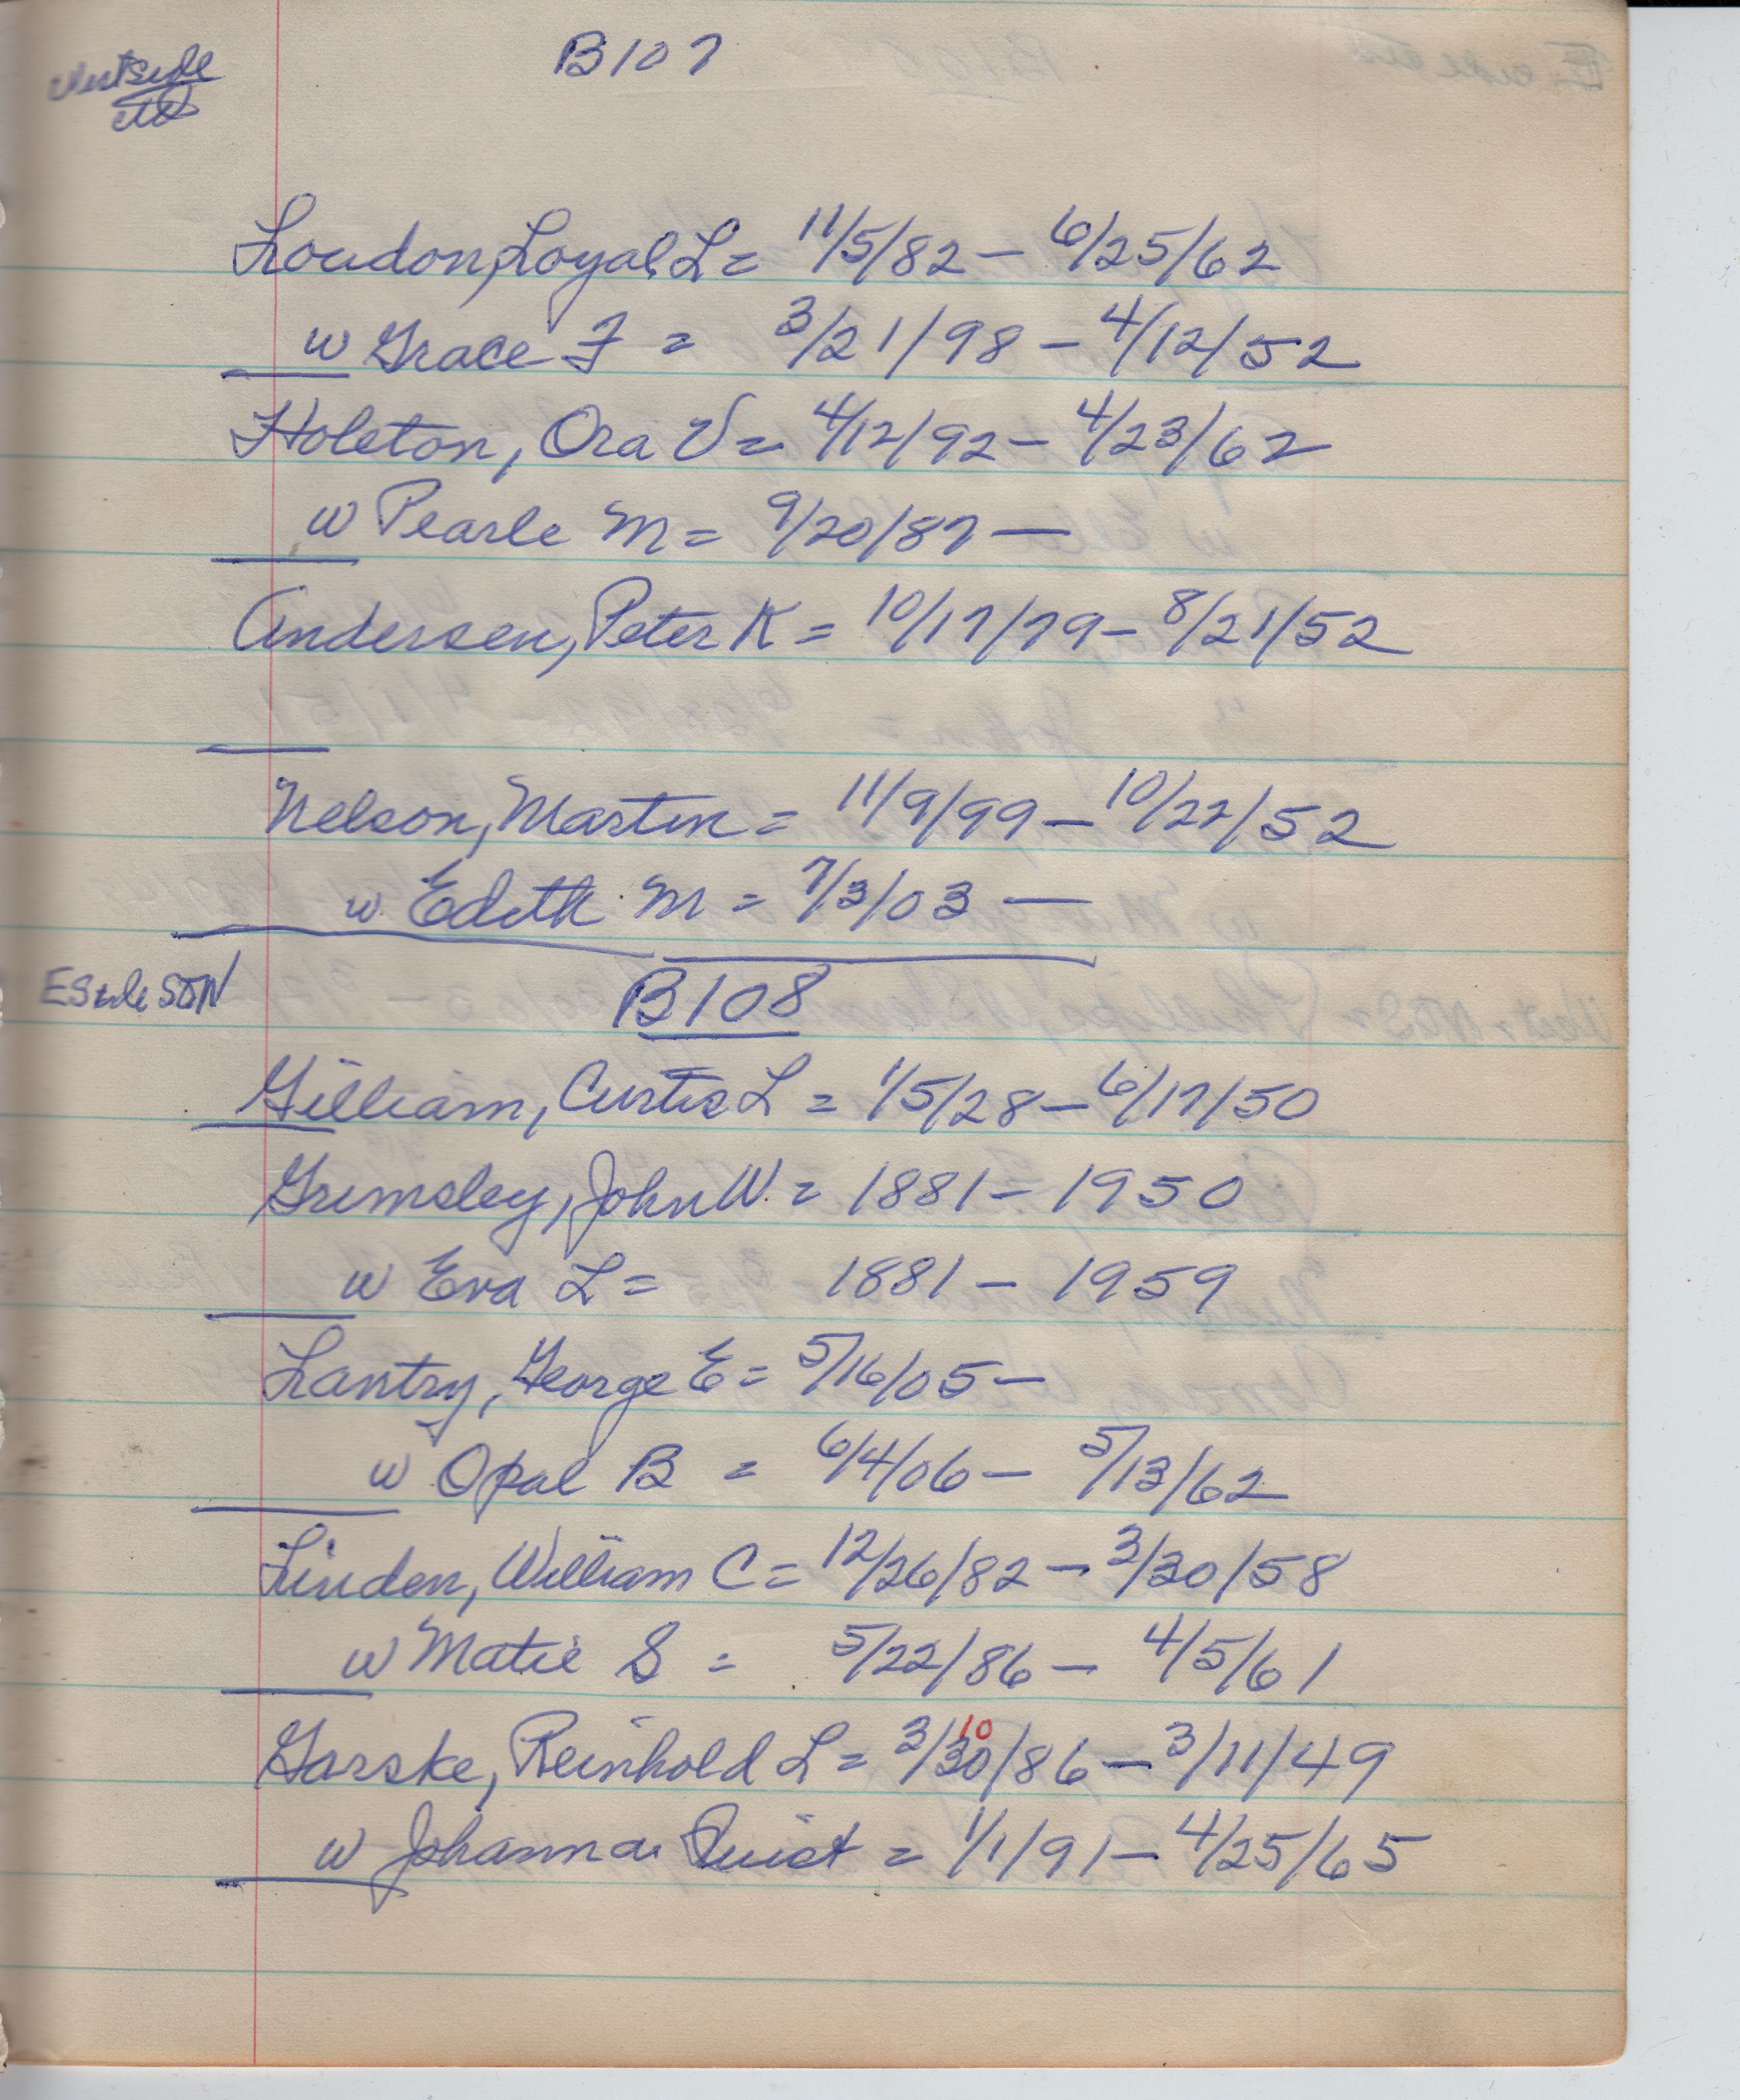 Westside
B107
Loudon, Loyal L = 11/5/82 - 6/25/62
w Grace F = 3/21/98 - 4/12/52
Holeton, Ora V = 4/12/92 - 4/23/62
w Pearle M = 9/20/87 -
Andersen, Peter K = 10/17/79 - 8/21/52
Nelson, Martin = 11/9/99 - 10/22/52
w Edith M = 7/3/03 -
E Side S
B108
Gilliam, Curtis L = 1/5/28 - 6/17/50
Grimsley, John W. = 1881 - 1950
w Eva L = 1881 - 1959
Lantry, George E = 5/16/05 -
w Opal B = 6/4/06 - 5/13/62
Linden, William C = 12/26/82 - 3/30/58
w Matie S = 5/22/86 - 4/5/61
10
Garske, Reinhold L = 3/30/86 - 3/11/49
w Johanna Quist = 1/1/91 - 4/25/65